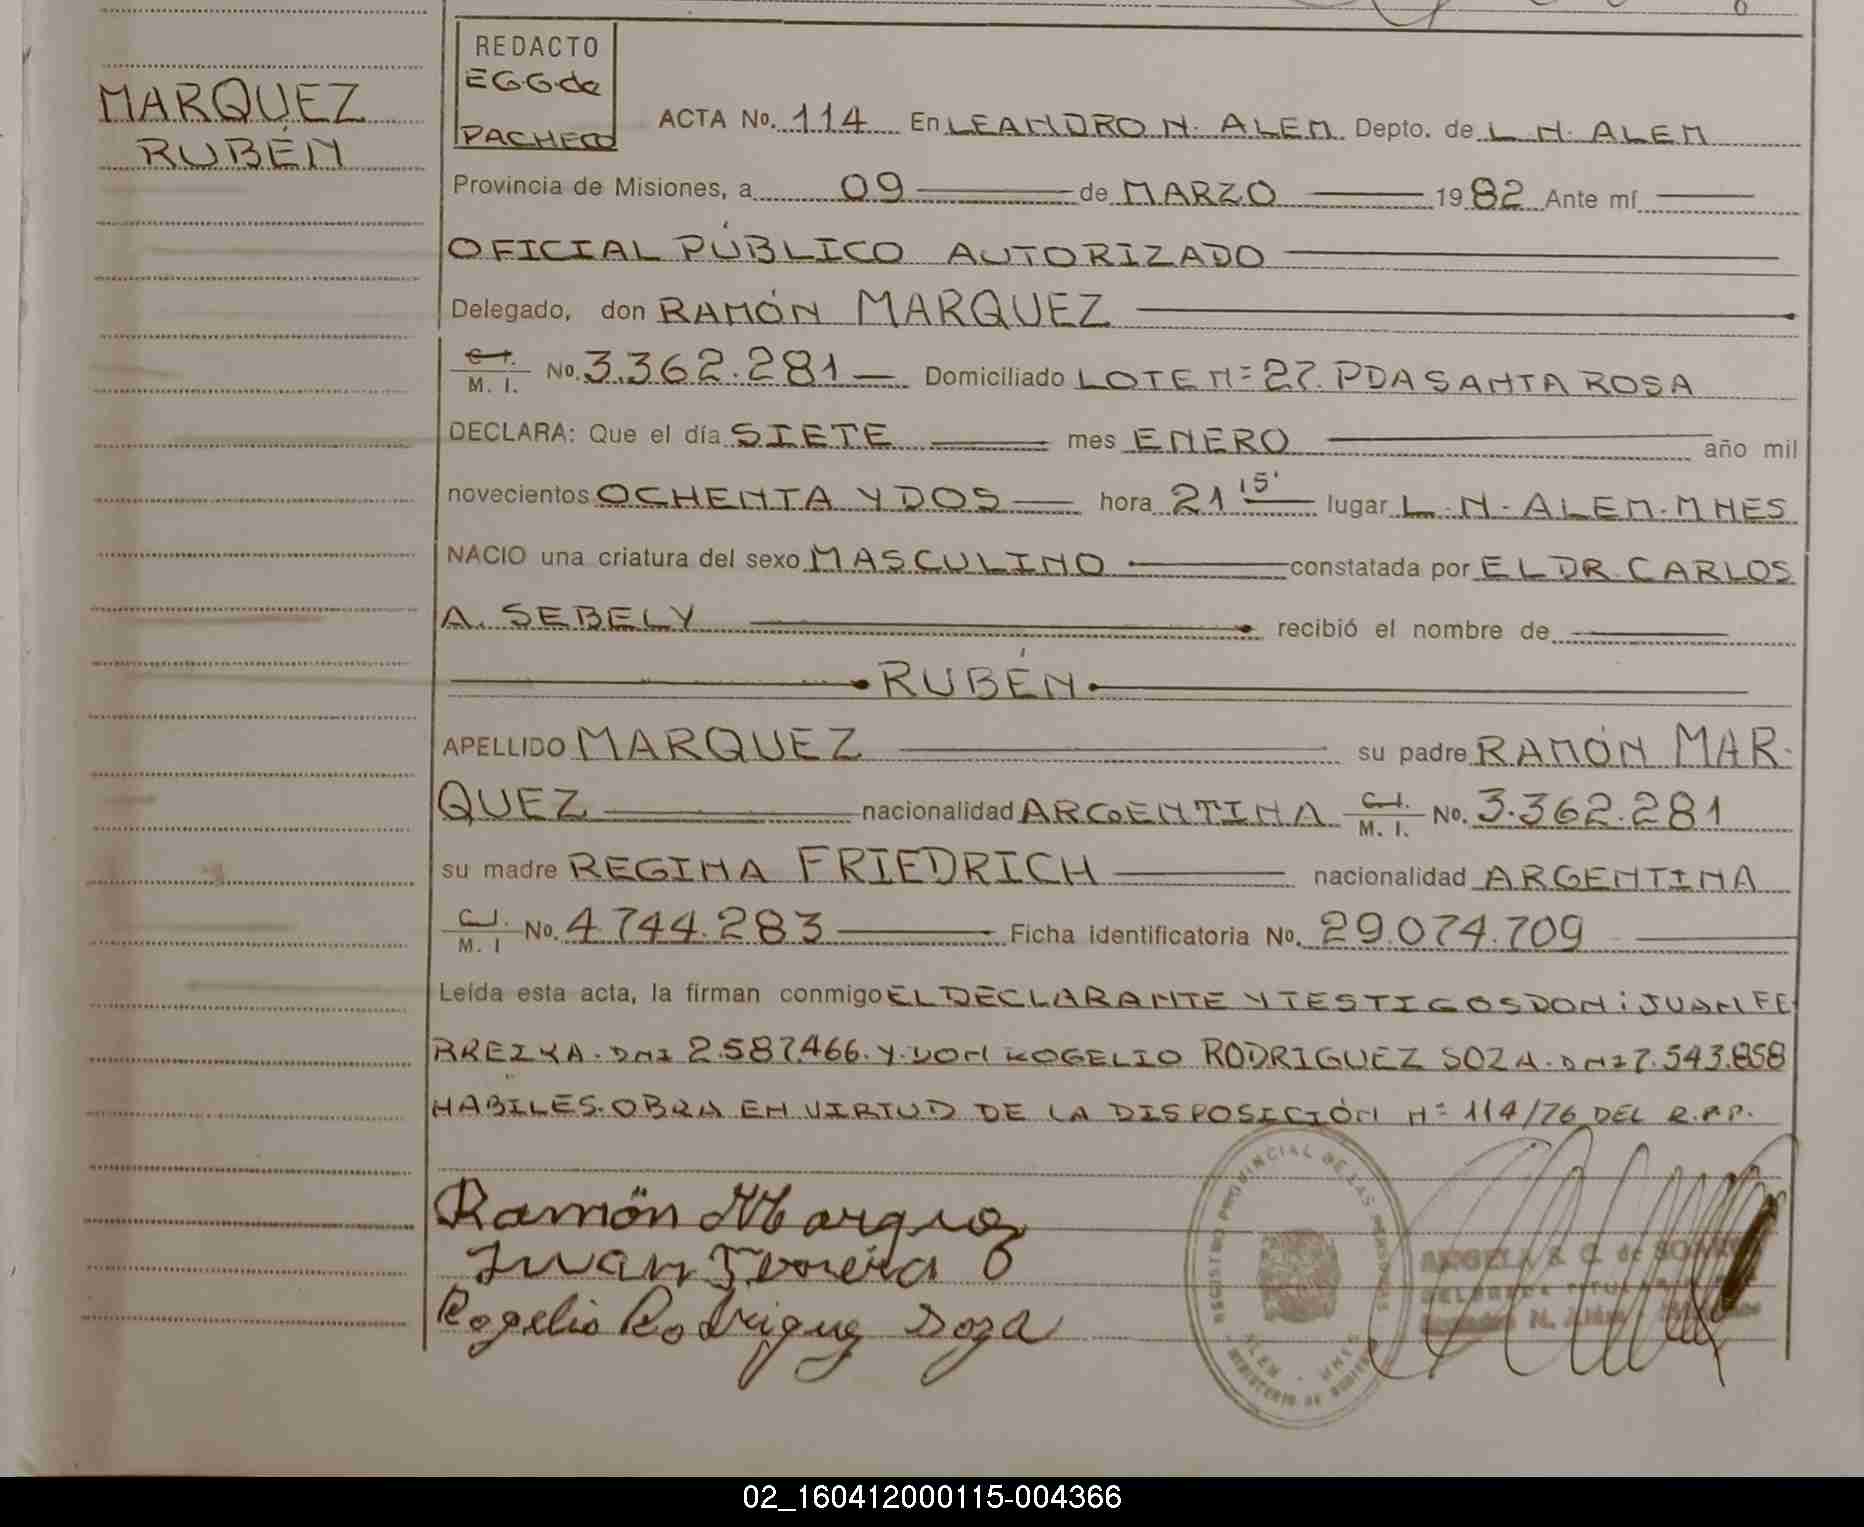 MARQUEZ
RUBÉN
REDACTO
EGG de
PACHECO
ACTA No. 114 En LEANDRO N. ALEM Depto. de L.N. ALEM
Provincia de Misiones, a 09 de MARZO 1982 Ante mí
OFICIAL PÚBLICO AUTORIZADO
Delegado, don RAMÓN MARQUEZ
C. I. M. I. No. 3.362.281 Domiciliado LOTE Nº 27. PDA SANTA ROSA
DECLARA: Que el día SIETE mes ENERO año mil
novecientos OCHENTA Y DOS hora 21 15' lugar L.N. ALEM. MNES
NACIO una criatura del sexo MASCULINO constatada por EL DR. CARLOS
A. SEBELY recibió el nombre de
RUBÉN
APELLIDO MARQUEZ su padre RAMÓN MAR-
QUEZ nacionalidad ARGENTINA C. I. M. I. No. 3.362.281
su madre REGINA FRIEDRICH nacionalidad ARGENTINA
C. I. M. I No. 4.744.283 Ficha identificatoria No. 29.074.709
Leída esta acta, la firman conmigo EL DECLARANTE Y TESTIGOS DON: JUAN FE
RREIRA. DNI 2.587.466. Y. DON ROGELIO RODRIGUEZ SOZA. DNI 7.543.858
HABILES. OBRA EN VIRTUD DE LA DISPOSICIÓN Nº 114/76 DEL R.P.P.
Ramón Marquez
Juan Ferreira
Rogelio Rodriguez Soza
REGISTRO PROVINCIAL DE LAS PERSONAS
ALEM - MNES
MINISTERIO DE GOBIERNO
ANGELA S. C. de
DELEGADA TITULAR
Leandro N. Alem
02_160412000115-004366